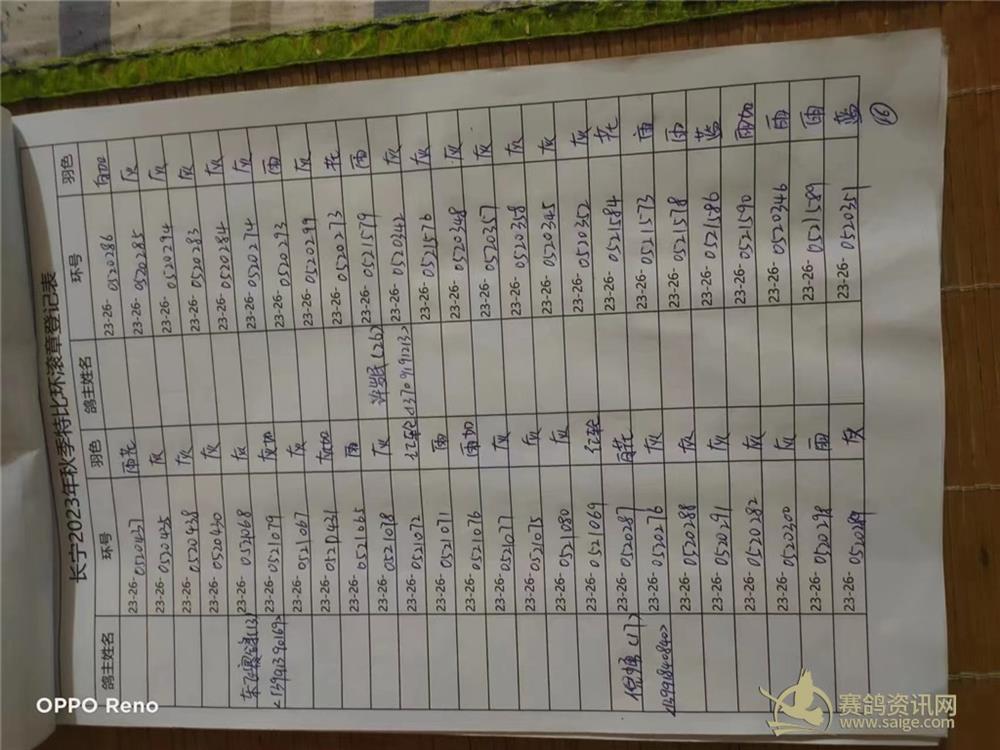 长宁2023年秋季特比环滚章登记表
鸽主姓名 环号 羽色 鸽主姓名 环号 羽色
23-26-0520437 雨花 23-26-0520286 雨加
23-26-0520435 灰 23-26-0520285 灰
23-26-0520438 灰 23-26-0520294 灰
23-26-0520430 灰 23-26-0520283 灰
23-26-0521068 灰 23-26-0520284 灰
23-26-0521079 灰加 23-26-0520274 灰
23-26-0521067 灰 23-26-0520293 雨
23-26-0520431 灰加 23-26-0520299 灰
23-26-0521065 雨 23-26-0520273 花
23-26-0521078 灰 (26) 23-26-0521579 雨
23-26-0521072 红轮 <13709191213> 23-26-0520342 灰
23-26-0521071 雨 23-26-0521576 灰
23-26-0521076 雨加 23-26-0520348 灰
23-26-0521077 灰 23-26-0520357 灰
23-26-0521075 灰 23-26-0520358 灰
23-26-0521080 灰 23-26-0520345 灰
23-26-0521069 红轮 23-26-0520352 灰
(17) 23-26-0520287 23-26-0521584 花
23-26-0520276 灰 23-26-0521573 雨
23-26-0520288 灰 23-26-0521578 雨
23-26-0520291 灰 23-26-0521586 蓝
23-26-0520282 灰 23-26-0521590 雨加
23-26-0520300 灰 23-26-0520346 雨
23-26-0520298 雨 23-26-0521589 雨
23-26-0520289 灰 23-26-0520351 蓝
16
OPPO Reno
赛鸽资讯网
www.saige.com